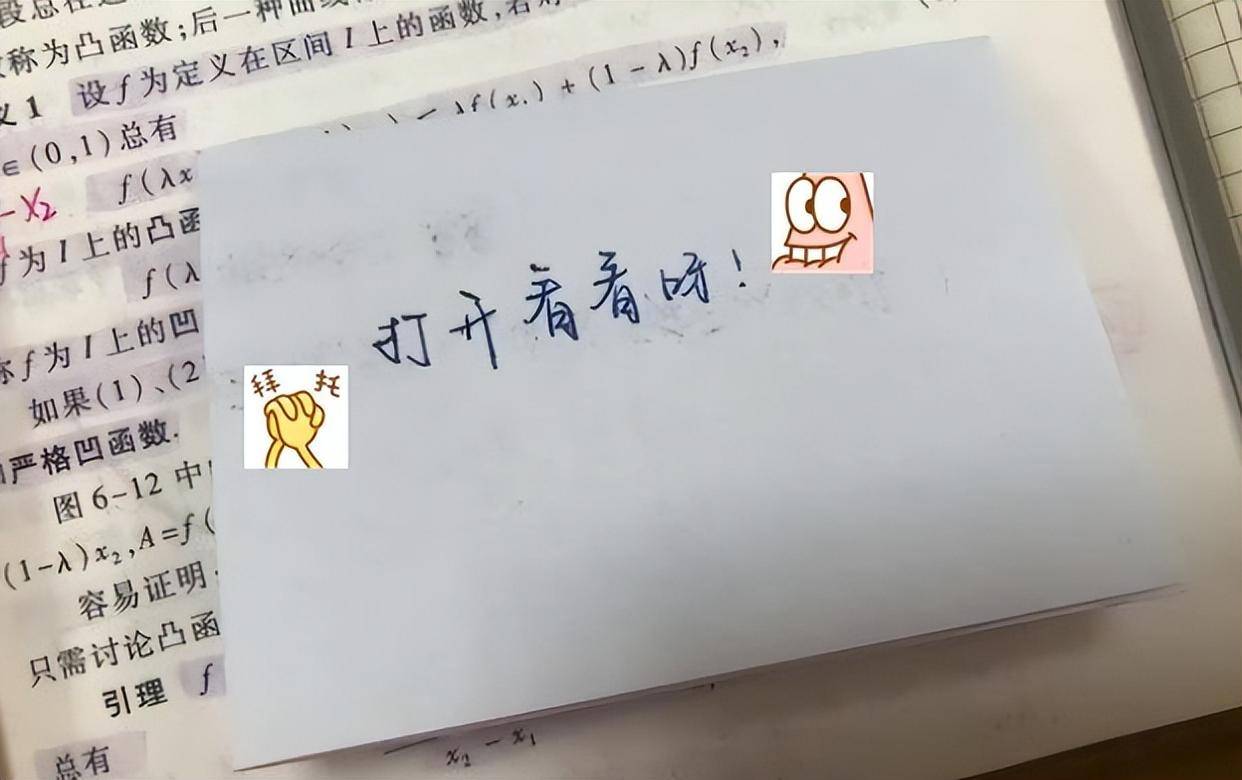 称为凸函数;后一种曲线
义1 设f为定义在区间I上的函数,若
∈(0,1)总有
λf(x₁)+(1-λ)f(x₂),
f(λx
-x₂
f为I上的凸函
f(λ
称f为I上的凹
如果(1)、(2
严格凹函数.
图6-12中
(1-λ)x₂,A=f(
容易证明
只需讨论凸函
引理 f
总有
x₂-x₁
打开看看呀!
拜托